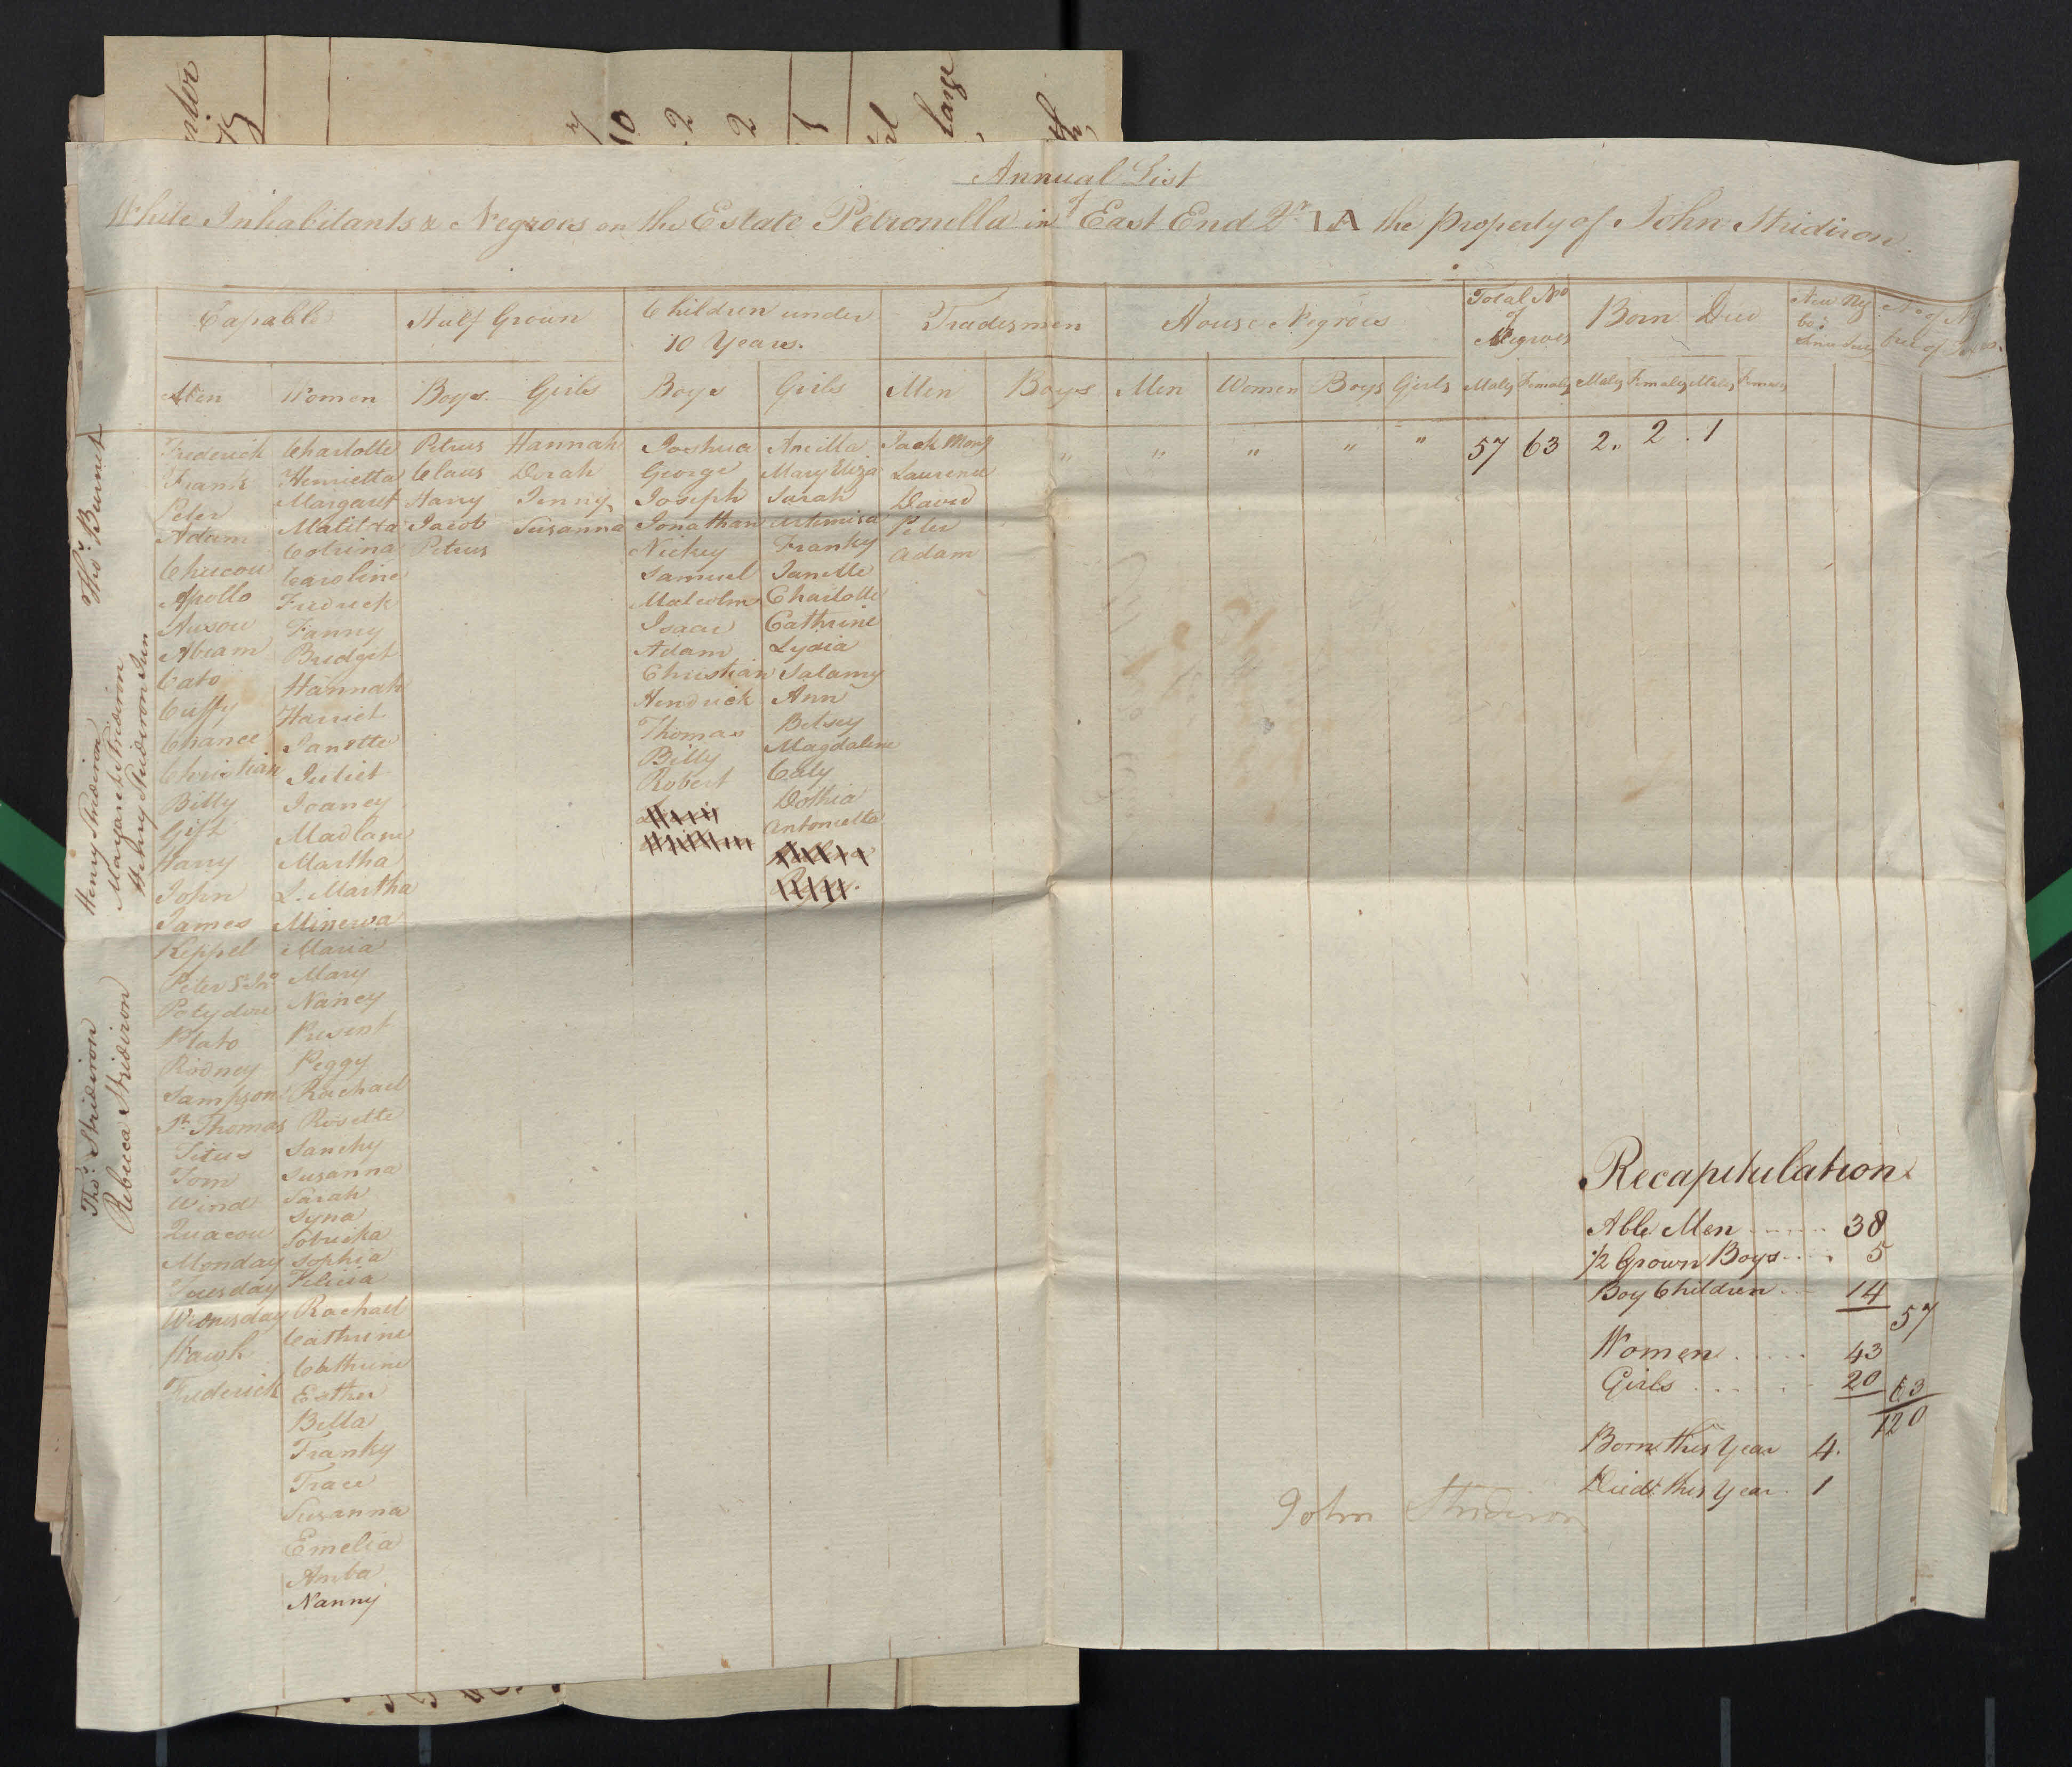 Annual List
of
White Inhabitants & Negroes on the Estate Petronella in East End Qr LA the Property of John Stridiron
Capable Half Grown Children under Tradesmen House Negroes Total No Born Died New Neg
10 Years. of
Negroes
Men Women Boys. Girls Boys Girls Men Boys Men Women Boys Girls Males Females Males Females Males Females
Frederick Charlotte Petrus Hannah Joshua Ancilla Jack Mong " " " " " 57 63 2. 2. 1
Frank Henrietta Claus Dorah George Mary Eliza Laurence
Peter Margaret Harry Jenny Joseph Sarah David
Adam Matilda Jacob Susanna Jonathan Artemisa Peter
Chucou Cotrina Petrus Nickey Franky Adam
Apollo Caroline Samuel Janette
Ausou Fredrick Malcolm Charlotte
Abram Fanny Isaac Cathrine
Cato Bridget Adam Lydia
Cuffy Hannah Christian Salamy
Chance Harriet Hendrick Ann
Christian Janette Thomas Betsey
Billy Juliet Billy Magdalene
Gift Joaney Robert Caty
Harry Madlane Dothia
John Martha Antonetta
James L. Martha
Keppel Minerva
Peter Senr Maria
Polydore Mary
Plato Nancy
Rodney Present
Sampson Peggy
St Thomas Rachael
Titus Rosette
Tom Sanchy
Wind Susanna
Quacou Sarah
Monday Syna
Tuesday Sobrieka
Wednesday Sophia
Waugh Felicia
Frederick Rachael
Cathrine
Cathrine
Esther
Bella
Franky
Trace
Susanna
Emelia
Amba
Nanny
Thos Burnet
Henry Stridiron
Margaret Stridiron
Henry Stridiron Jun
Thos: Stridiron
Rebecca Stridiron
Recapitulation
Able Men 38
1/2 Grown Boys 5
Boy Children 14
57
Women 43
Girls 20 63
120
Born this Year 4.
Died this Year. 1
John Stridiron
large
10
2
2
1